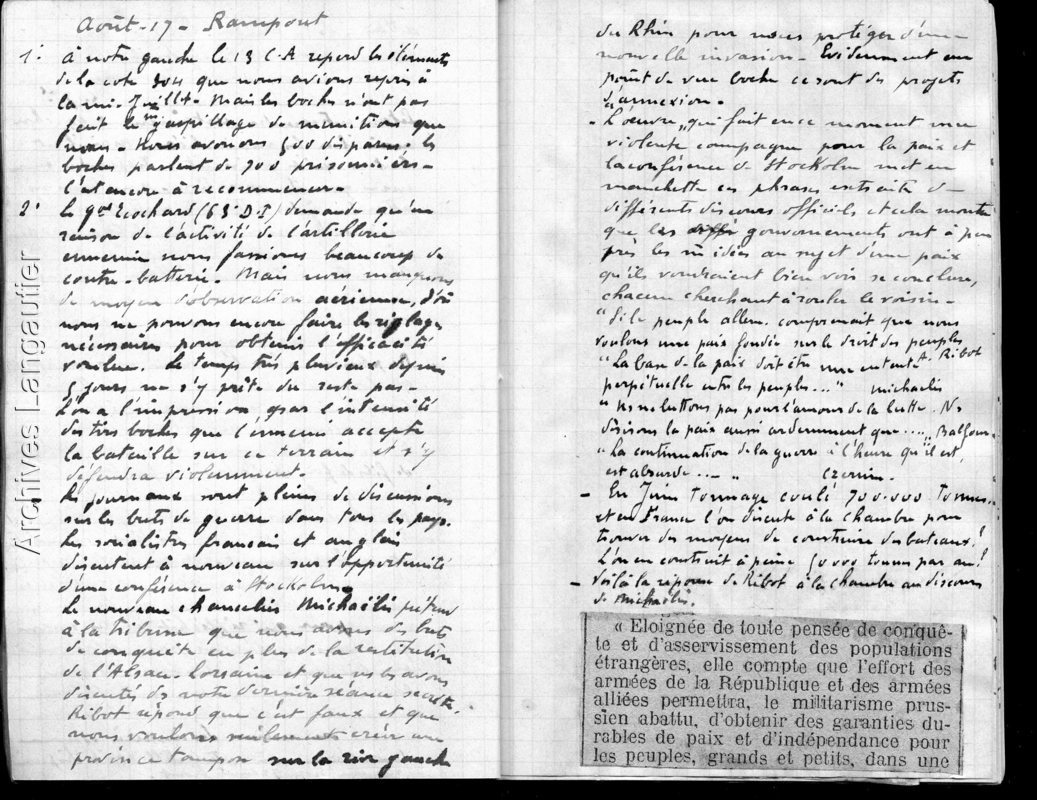 Août-17- Rampont
1° à notre gauche le 13 C.A reprend les éléments
de la cote 304 que nous avions repris à
la mi-Juillt- Mais les boches n'ont pas
fait le gaspillage de munitions que
nous- Nous avons 500 disparus. les
boches parlent de 700 prisonniers-
C'est encore à recommencer-
2° le gal Ecochard (63° D.I) demande qu'en
raison de l'activité de l'artillerie
ennemie nous fassions beaucoup de
contre-batterie. Mais nous manquons
de moyen d'observation aérienne, d'où
nous ne pouvons encore faire les réglages
nécessaires pour obtenir l'efficacité
voulue. Le temps très pluvieux depuis
5 jours ne s'y prête du reste pas-
L'on a l'impression, par l'intensité
des tirs boches que l'ennemi accepte
la bataille sur ce terrain et s'y
défendra violemment.
Les journaux sont pleins de discussions
sur les buts de guerre dans tous les pays.
Les socialistes français et anglais
discutent à nouveau sur l'opportunité
d'une conférence à Stockolm
Le nouveau chancelier Michaëlis prétend
à la tribune que nous avons des buts
de conquête en plus de la restitution
de l'Alsace-Lorraine et que ns les avons
discutés ds notre dernière séance secrète.
Ribot répond que c'est faux et que
nous voulons seulement créer une
province tampon sur la rive gauche
du Rhin pour nous protéger d'une
nouvelle invasion- Evidemment au
point de vue boche ce sont des projets
d'annexion-
- L'œuvre, qui fait en ce moment une
violente campagne pour la paix et
la conférence de Stockolm met en
manchette ces phrases extraite de
différents discours officiels et cela montre
que les gouvernements ont à peu
près les m idées au sujet d'une paix
qu'ils voudraient bien vois se conclure,
chacun cherchant à rouler le voisin-
"Si le peuple allem. comprenait que nous
voulons une paix fondée sur le droit des peuples
A. Ribot
"La base de la paix doit être une entente
perpétuelle entre les peuples..." michaelis
"Ns ne luttons pas pour l'amour de la lutte. Ns
désirons la paix aussi ardemment que...." Balfour-
"La continuation de la guerre à l'heure qu'il est,
est absurde..." Czernin.
- En Juin tonnage coulé 700.000 tonnes.
et en France l'on discute à la chambre pour
trouver des moyens de construire des bateaux!
L'on en construit à peine 50 000 tonnes par an!
- Voilà la réponse de Ribot à la chambre au discours
de Michaëlis.
« Eloignée de toute pensée de conquê-
te et d'asservissement des populations
étrangères, elle compte que l'effort des
armées de la République et des armées
alliées permettra, le militarisme prus-
sien abattu, d'obtenir des garanties du-
rables de paix et d'indépendance pour
les peuples, grands et petits, dans une
Archives Langautier